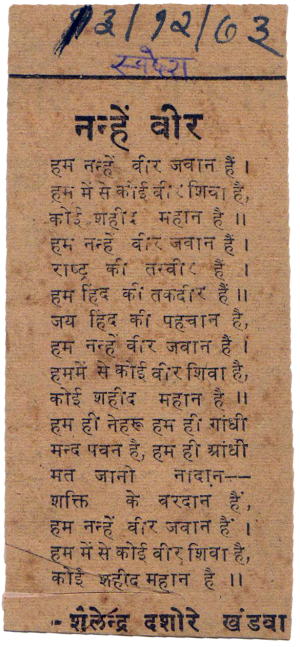 १३/१२/७३
स्वदेश
नन्हें वीर
हम नन्हें वीर जवान हैं ।
हम में से कोई वीर शिवा है,
कोई शहीद महान है ॥
हम नन्हें वीर जवान हैं ।
राष्ट्र की तस्वीर हैं ।
हम हिंद की तकदीर हैं ॥
जय हिंद की पहचान है,
हम नन्हे वीर जवान हैं ।
हममें से कोई वीर शिवा है,
कोई शहीद महान है ॥
हम ही नेहरू हम ही गांधी
मन्द पवन है, हम ही आंधी
मत जानो नादान--
शक्ति के वरदान हैं,
हम नन्हें वीर जवान हैं ।
हम में से कोई वीर शिवा है,
कोई शहीद महान है ॥
- शैलेन्द्र दशोरे खंडवा